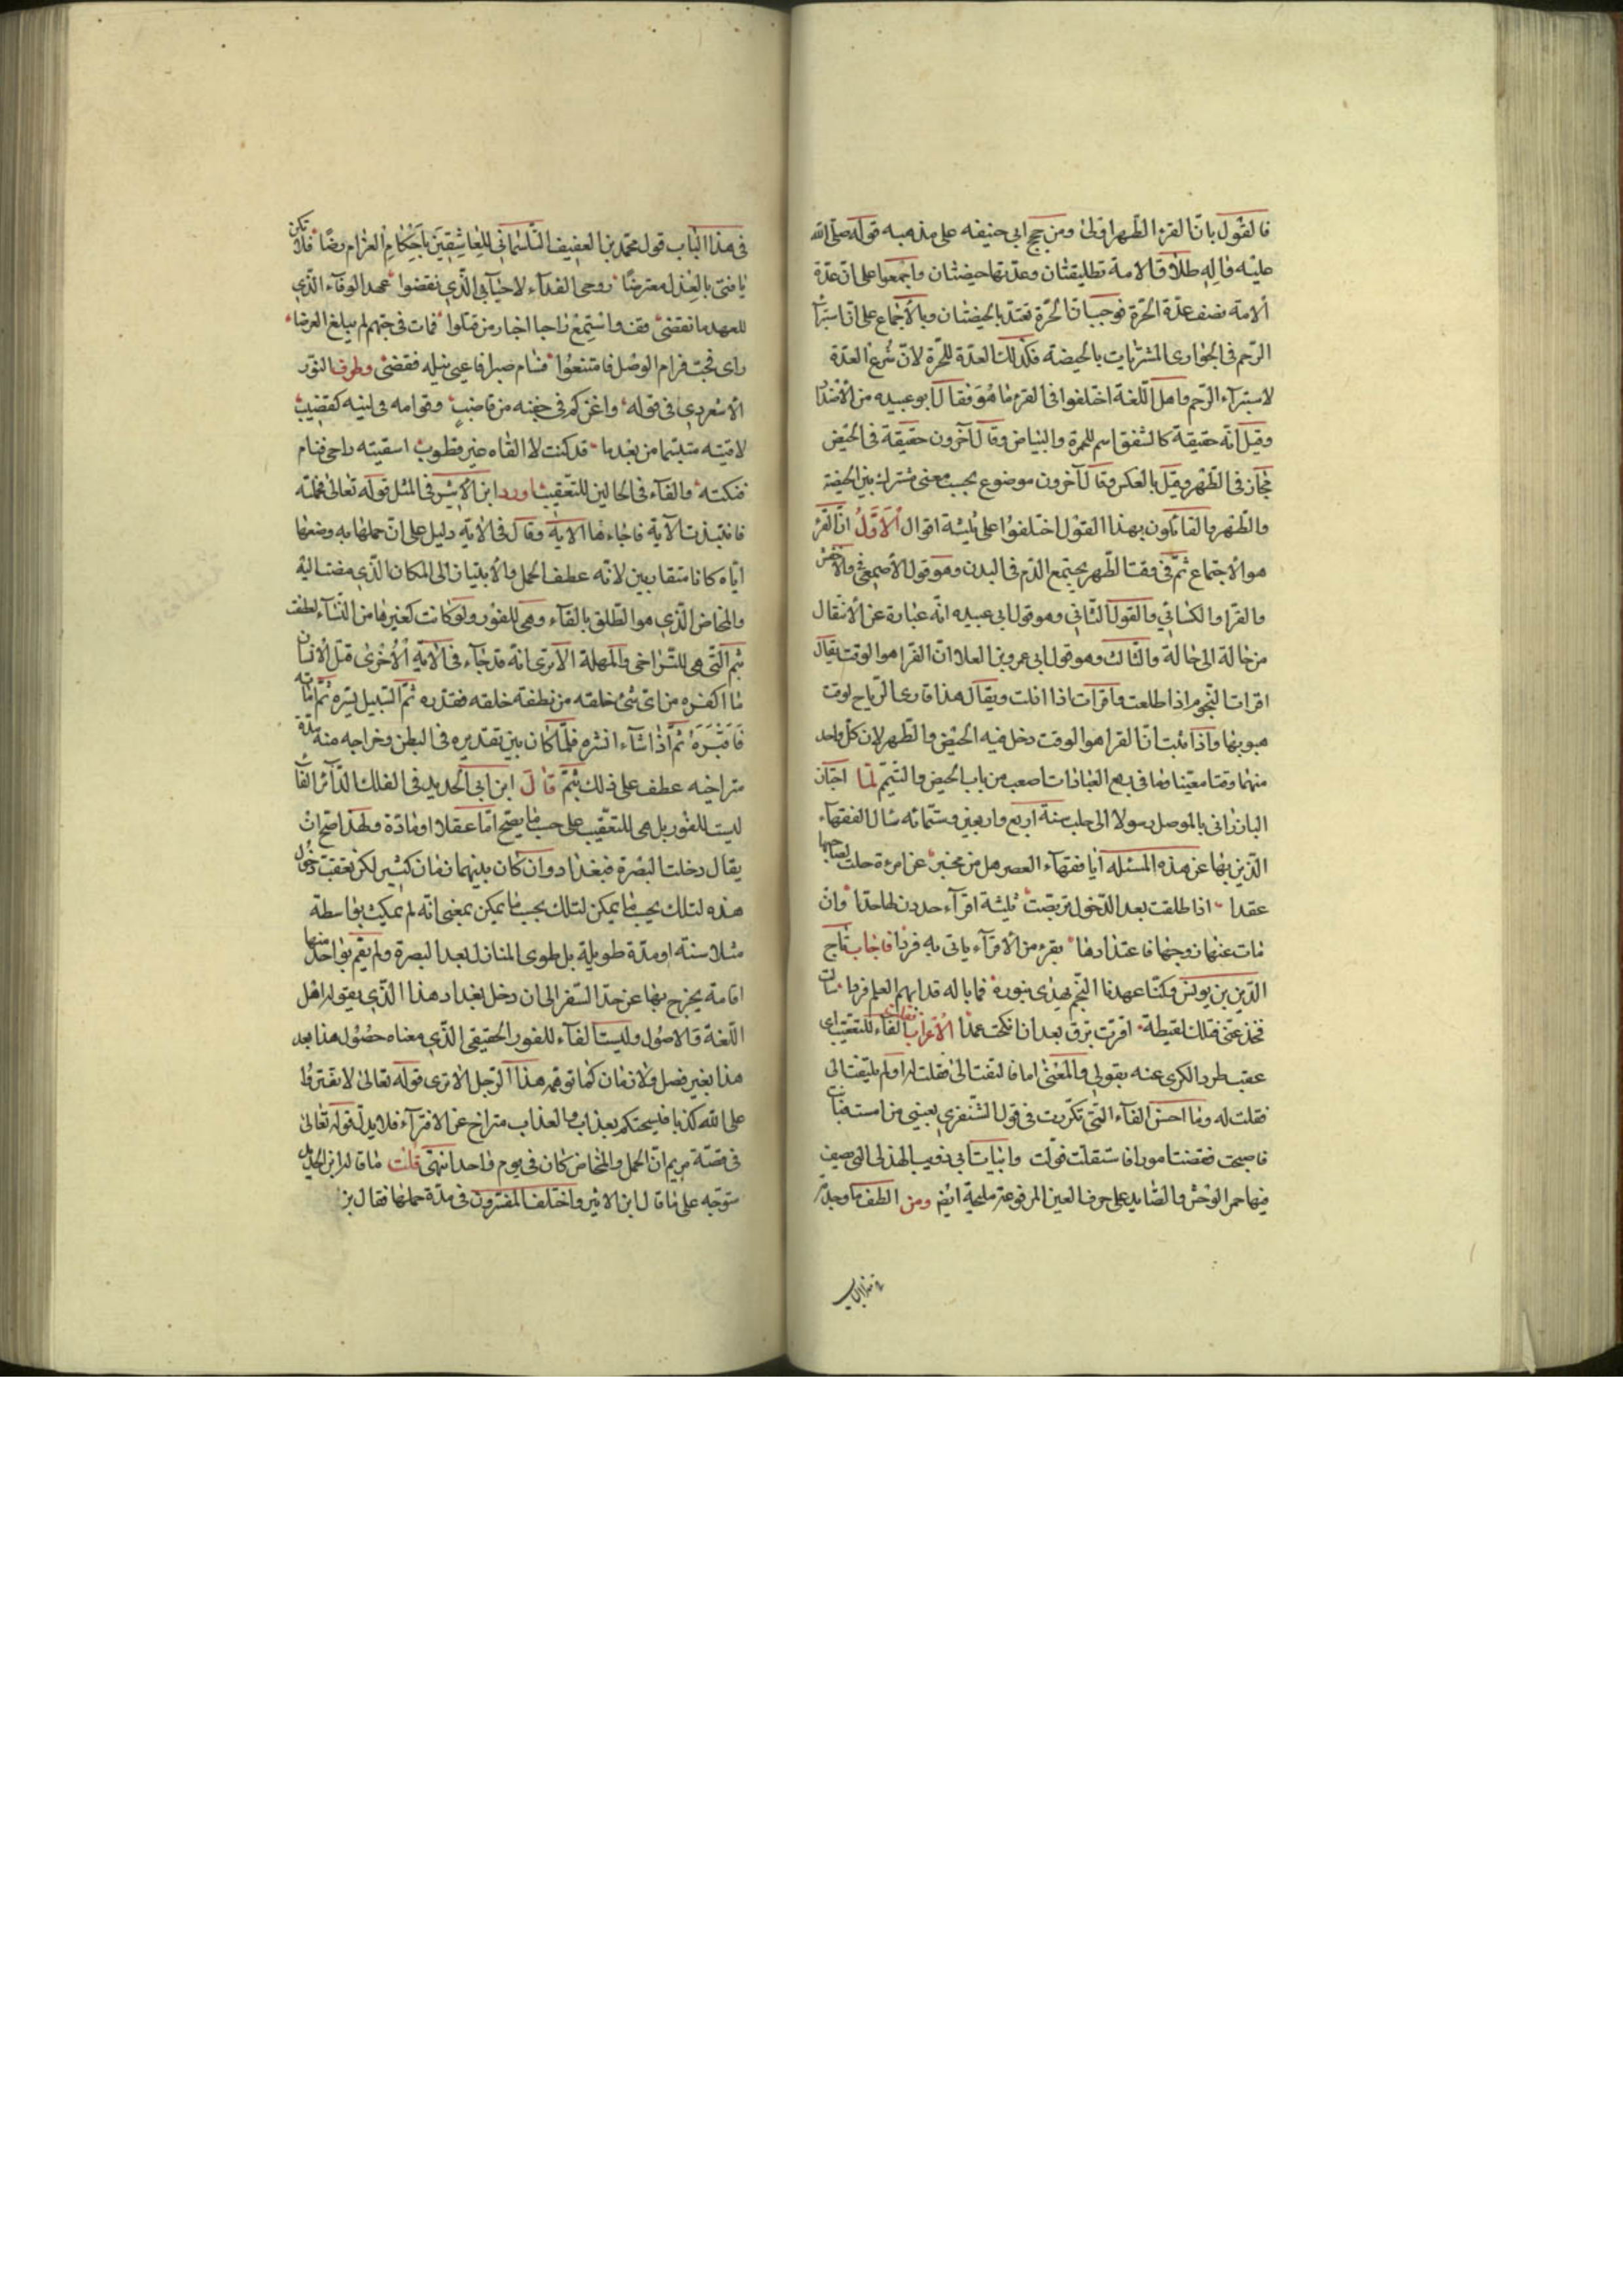 فالقول بانّ القرء الطّهر اولى ومن حجج ابى حنيفه على مذهبه قوله صلى الله
عليه واله طلاق الامة تطليقتان وعدّتها حيضتان واجمعوا على انّ عدّة
الامة نصف عدّة الحرّة فوجب انّ الحرّة تعتدّ بالحيضتان وبالاجماع على انّ استبرآء
الرّحم فى الجوارى المشتريات بالحيضة فكذلك العدّة للحرّة لانّ شرع العدّة
لاستبرآء الرّحم واهل اللّغة اختلفوا فى القرء ما هو فقال ابو عبيده من الاضداد
وقيل انّه حقيقة كالشفق اسم للحمرة والبياض وقال آخرون حقيقة فى الحيض
مجاز فى الطّهر وقيل بالعكس وقال آخرون موضوع بحسب معنى مشترك بين الحيضة
والطّهر والقائلون بهذا القول اختلفوا على ثلثة اقوال الاوّل انّ القرء
هو الاجتماع ثمّ فى وقت الطّهر يجتمع الدّم فى البدن وهو قول الاصمعىّ والاخفش
والفرّا والكسائىّ والقول الثّانى وهو قول ابى عبيده انّه عبارة عن الانتقال
من حالة الى حالة والثّالث وهو قول ابى عمرو بن العلا انّ القرا هو الوقت يقال
اقرات النّجوم اذا طلعت واقرات اذا افلت ويقال هذا قارى الرّياح لوقت
هبوبها واذا ثبت انّ القرا هو الوقت دخل فيه الحيض والطّهر لان كل واحد
منهما وقتا معيّنا وما فى ربع العبادات اصعب من باب الحيض والتيمّم لمّا اجتاز
البازرانى بالموصل رسولا الى حلب سنة اربع واربعين وستّمائه سال الفقهآء
الّذين بها عن هذه المسئله أيا فقهآء العصر هل من مخبر عن امرءة حلت لصاحبها
عقدا اذا طلقت بعد الدّخول تربصت ثلثة اقرآء حددن لها حدّا وان
مات عنها زوجها فاعتدادها بقرء من الاقرآء ياتى به فردا فاجاب تاج
الدّين بن يونس وكنّا عهدنا النّجم يهدى بنوره فما باله قد ابهم العلم فردا سالت
فخذ عنّى فتلك لقيطة اقرّت برق بعد ان نكحت عمدا الاعراب الفاء للتعقيب اى
عقب طرد الكرى عنه بقولى والمعنى اما فالتفت الىّ فقلت له او لم يلتفت الى
فقلت له وما احسن الفآء التّى تكرّرت فى قول الشّنفرى بعينى ما امست فباتت
فاصبحت فقضت امورا فاستقلت فولّت وابيات ابى ذويب الهذلى التى يصف
فيها حمر الوحش والصّايد على حرف العين المرفوعة مليحة ايضا ومن الطف ما وجدته
فى هذا الباب
فى هذا الباب قول محمّد بن العفيف التّلمسانى للعاشقين باحكام الغرام رضًا فلا تكن
يا فتى بالعذل معترضًا روحى الفدآء لاحبابى الّذى نقضوا عهد الوفآء الّذى
للعهد ما نقضى قف واستمع راحبا اخبار من قتلوا فمات فى حبّهم لم يبلغ الغرضا
راى فحبّ فرام الوصل فامتنعوا فسام صبرا فاعيى نيله فقضى وطرف النوّر
الاسعردى فى قوله واغن كم فى جفنه من قاضب وقوامه فى لينه كقضيب
لاقيته متبسّما من بعد ما قد كنت لا القاه غير قطوب اسقيته راحى فنام
فنكته والفآء فى الحالين للتعقيب اورد ابن الاثير فى المثل قوله تعالى فحملته
فانتبذت الآية فاجاءها الاية وقال فى الاية دليل على انّ حملها به وضعها
ايّاه كانا متقاربين لانّه عطف الحمل والانتباذ الى المكان الّذى مضت اليه
والمخاض الّذى هو الطّلق بالفآء وهى للفور ولو كانت كغيرها من النّسآء لعطف
بثمّ التّى هى للتّراخى والمهلة الا ترى انّه قد جآء فى الاية الاخرى قتل الانسان
ما اكفره من اىّ شئ خلقه من نطفة خلقه فقدّره ثمّ السّبيل يسّره ثمّ اماته
فاقبره ثمّ اذا شآء انشره فلمّا كان بين تقديره فى البطن وخراجه منه مدّة
متراخيه عطف على ذلك بثمّ قال ابن ابى الحديد فى الفلك الدّآئر الفآء
ليست للفور بل هى للتعقيب على حسب ما يصحّ امّا عقلا او عادّة ولهذا صحّ ان
يقال دخلت البصرة فبغداد وان كان بينهما زمان كثير لكن تعقب دخول
هذه لتلك بحسب ما يمكن لتلك بحسب ما يمكن بمعنى انّه لم يمكث بواسطة
مثلا سنة او مدّة طويلة بل طوى المنازل بعد البصرة ولم يقم بواحد منها
اقامة يخرج بها عن حدّ السّفر الى ان دخل بغداد هذا الّذى يقوله اهل
اللّغة والاصول وليست الفآء للفور الحقيقى الّذى معناه حصول هذا بعد
هذا بغير فصل ولا زمان كما توهّمه هذا الرّجل الا ترى قوله تعالى لا تفتروا
على اللّه كذبا فيسحتكم بعذاب والعذاب متراخ عن الافترآء فلا يدلّ قوله تعالى
فى قصّة مريم انّ الحمل والمخاض كان فى يوم واحد انتهى قلت ما قاله ابن ابى الحديد
متوجّه على ما قال ابن الاثير واختلف المفسّرون فى مدّة حملها فقال بن